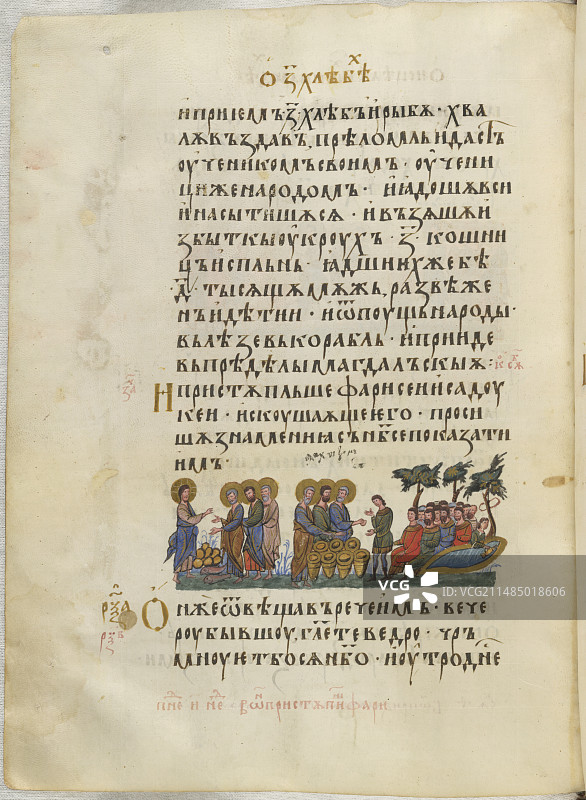 О з҃ хлѣбѣ
и҆ приемь з҃ хлѣбь и҆ рыбѫ · хва
лѫ въздавь, прѣломль и҆ дасть
оу҆ченикомь своимь · оу҆чени
ци же народомь · и҆ ꙗдошѫ вси
и҆ насытишѫсѧ · и҆ въꙁѧшѫ и
збыткы оу҆кроухъ · з҃ · кошни
цъ и҆сплънь · ꙗдшиихже бѣ
д҃ · тысѧщѧ мѫжь, развѣ же
нъ и҆ дѣтии · и҆ ѿпоущь народы ·
вълѣзе вь корабль · и҆ прииде
вь прѣдѣлы магдальскыѧ :
И пристѫпльше фарисеи и҆ садоу
кеи · и҆скоушаѧще его · проси
шѫ знамениа съ нб҃се показати
имь
Онже ѿвѣщавъ рече имь · вече
роу бывшоу, гл҃ете ведро · чръ
мноует босѧ нб҃о · и҆ оу҆тро днⷭе
VCG
ID: VCG211485018606
VCG.COM